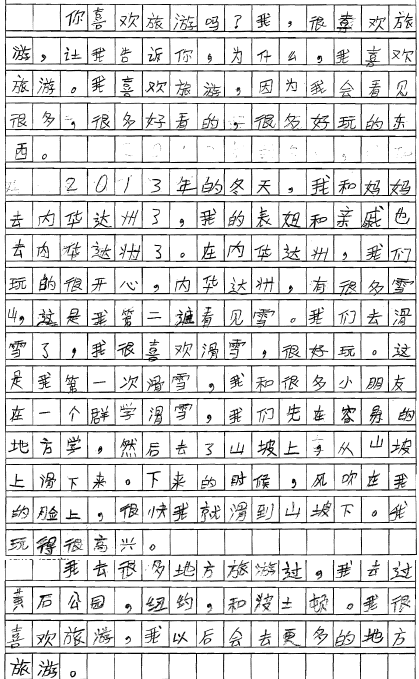 你喜欢旅游吗？我，很喜欢旅
游，让我告诉你，为什么，我喜欢
旅游。我喜欢旅游，因为我会看见
很多，很多好看的，很多好玩的东
西。
2013年的冬天，我和妈妈
去内华达州了，我的表姐和亲戚也
去内华达州了。在内华达州，我们
玩的很开心，内华达州，有很多雪
山，这是我第二谁看见雪。我们去滑
雪了，我很喜欢滑雪，很好玩。这
是我第一次滑雪，我和很多小朋友
在一个群学滑雪，我们先在容易的
地方学，然后去了山坡上，从山坡
上滑下来。下来的时候，风吹在我
的脸上，很快我就滑到山坡下。我
玩得很高兴。
我去很多地方旅游过，我去过
黄石公园，纽约，和波士顿。我很
喜欢旅游，我以后会去更多的地方
旅游。